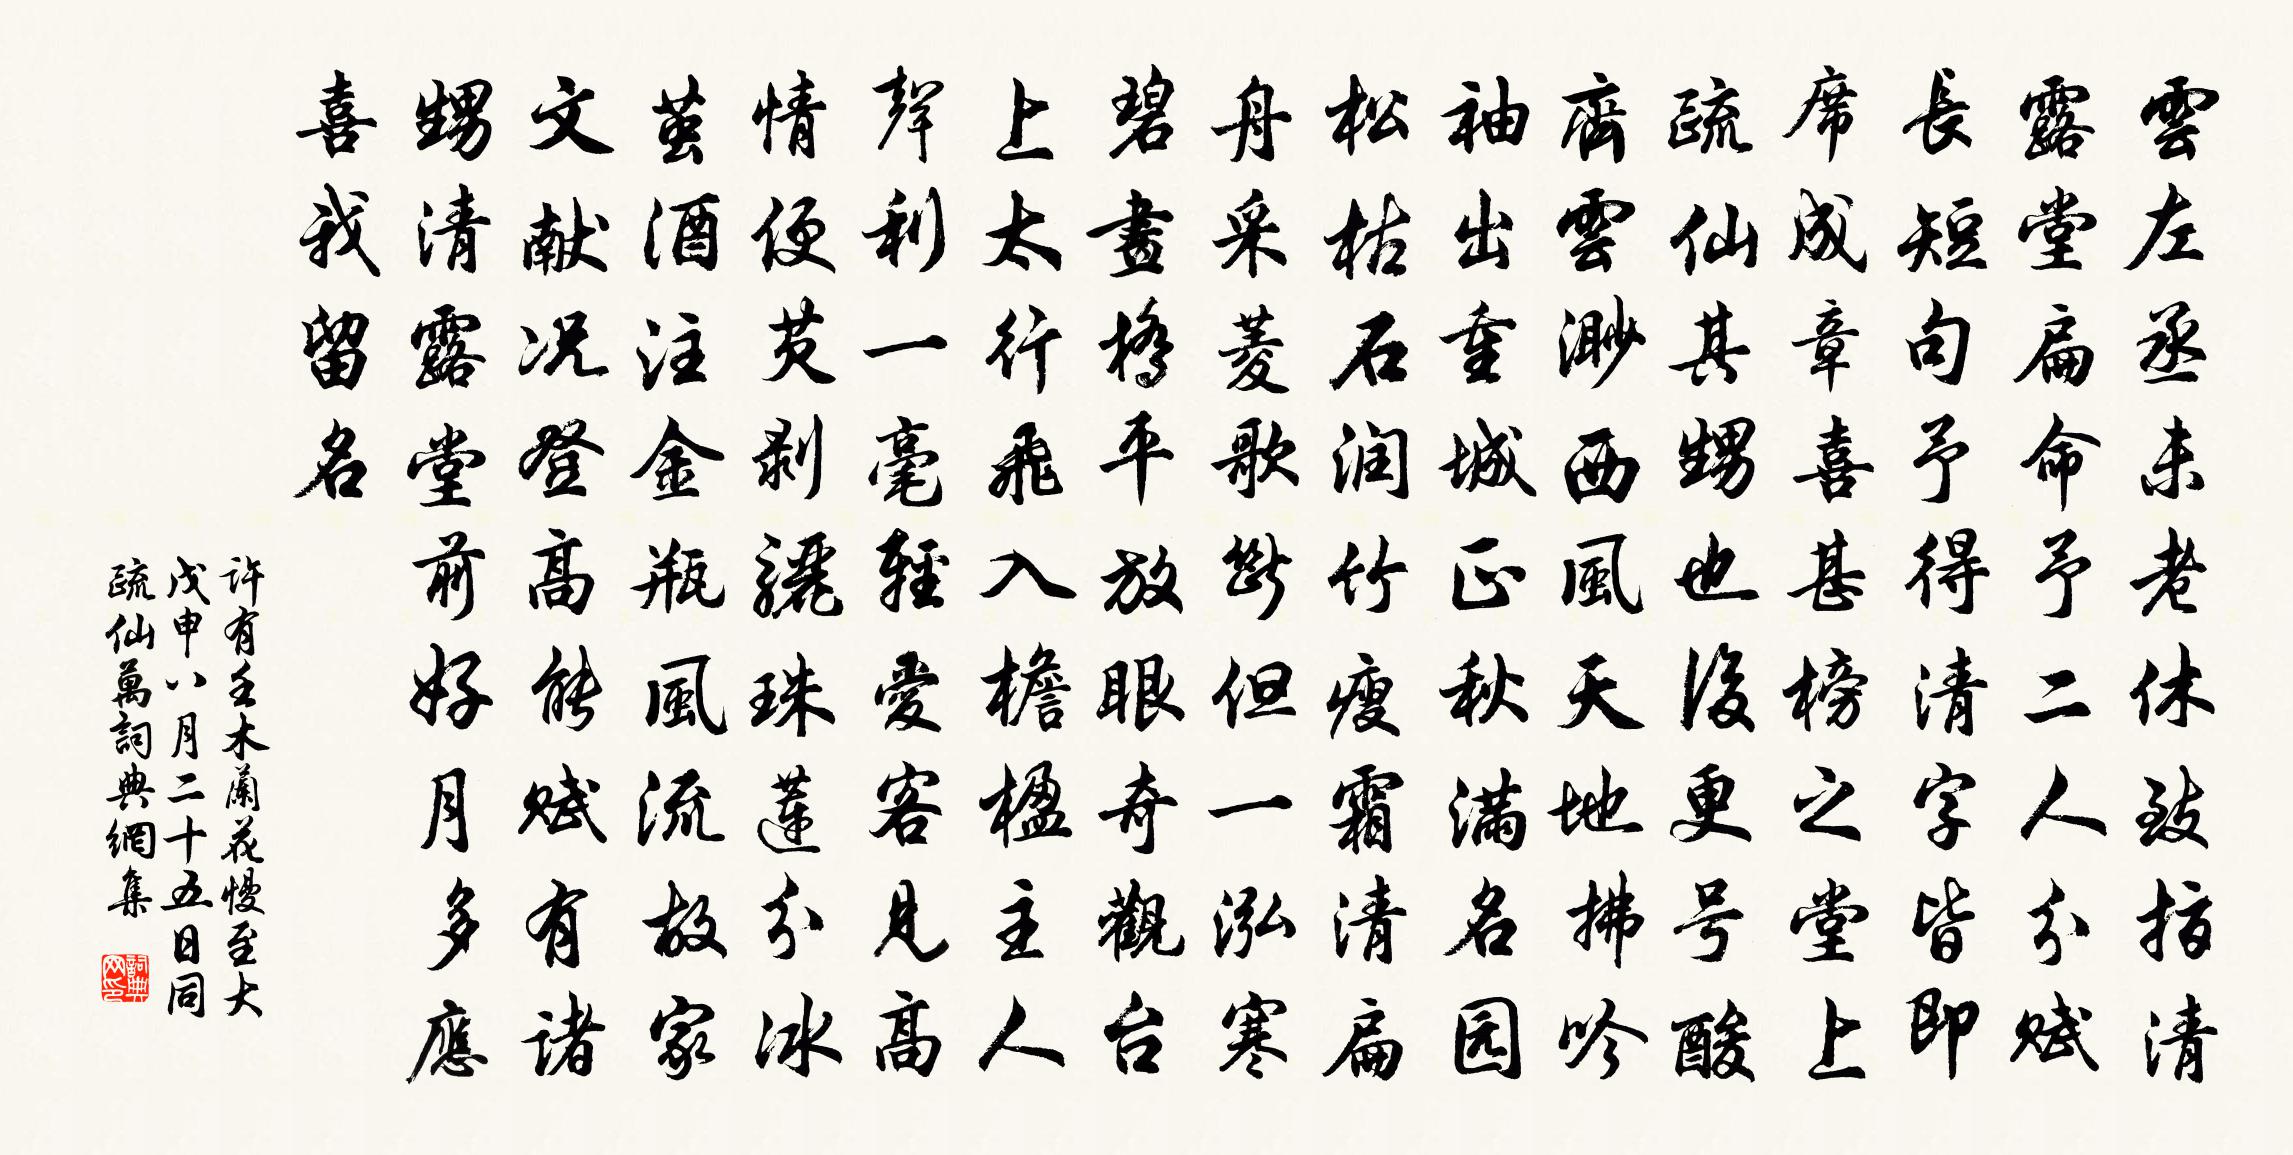 雲左丞未老休致指清
露堂扁命予二人分赋
長短句予得清字皆即
席成章喜甚榜之堂上
疏仙其甥也後更号酸
齋雲渺西風天地拂吟
袖出重城正秋满名园
松枯石润竹瘦霜清扁
舟采菱歌断但一泓寒
碧畫橋平放眼奇觀台
上太行飛入檐楹主人
聲利一毫輕愛客見高
情便芡剥驪珠蓮分冰
茧酒注金瓶風流故家
文献况登高能赋有诸
甥清露堂前好月多應
喜我留名
许有壬木蘭花慢至大
戊申八月二十五日同
疏仙萬詞典網集
詞典网印